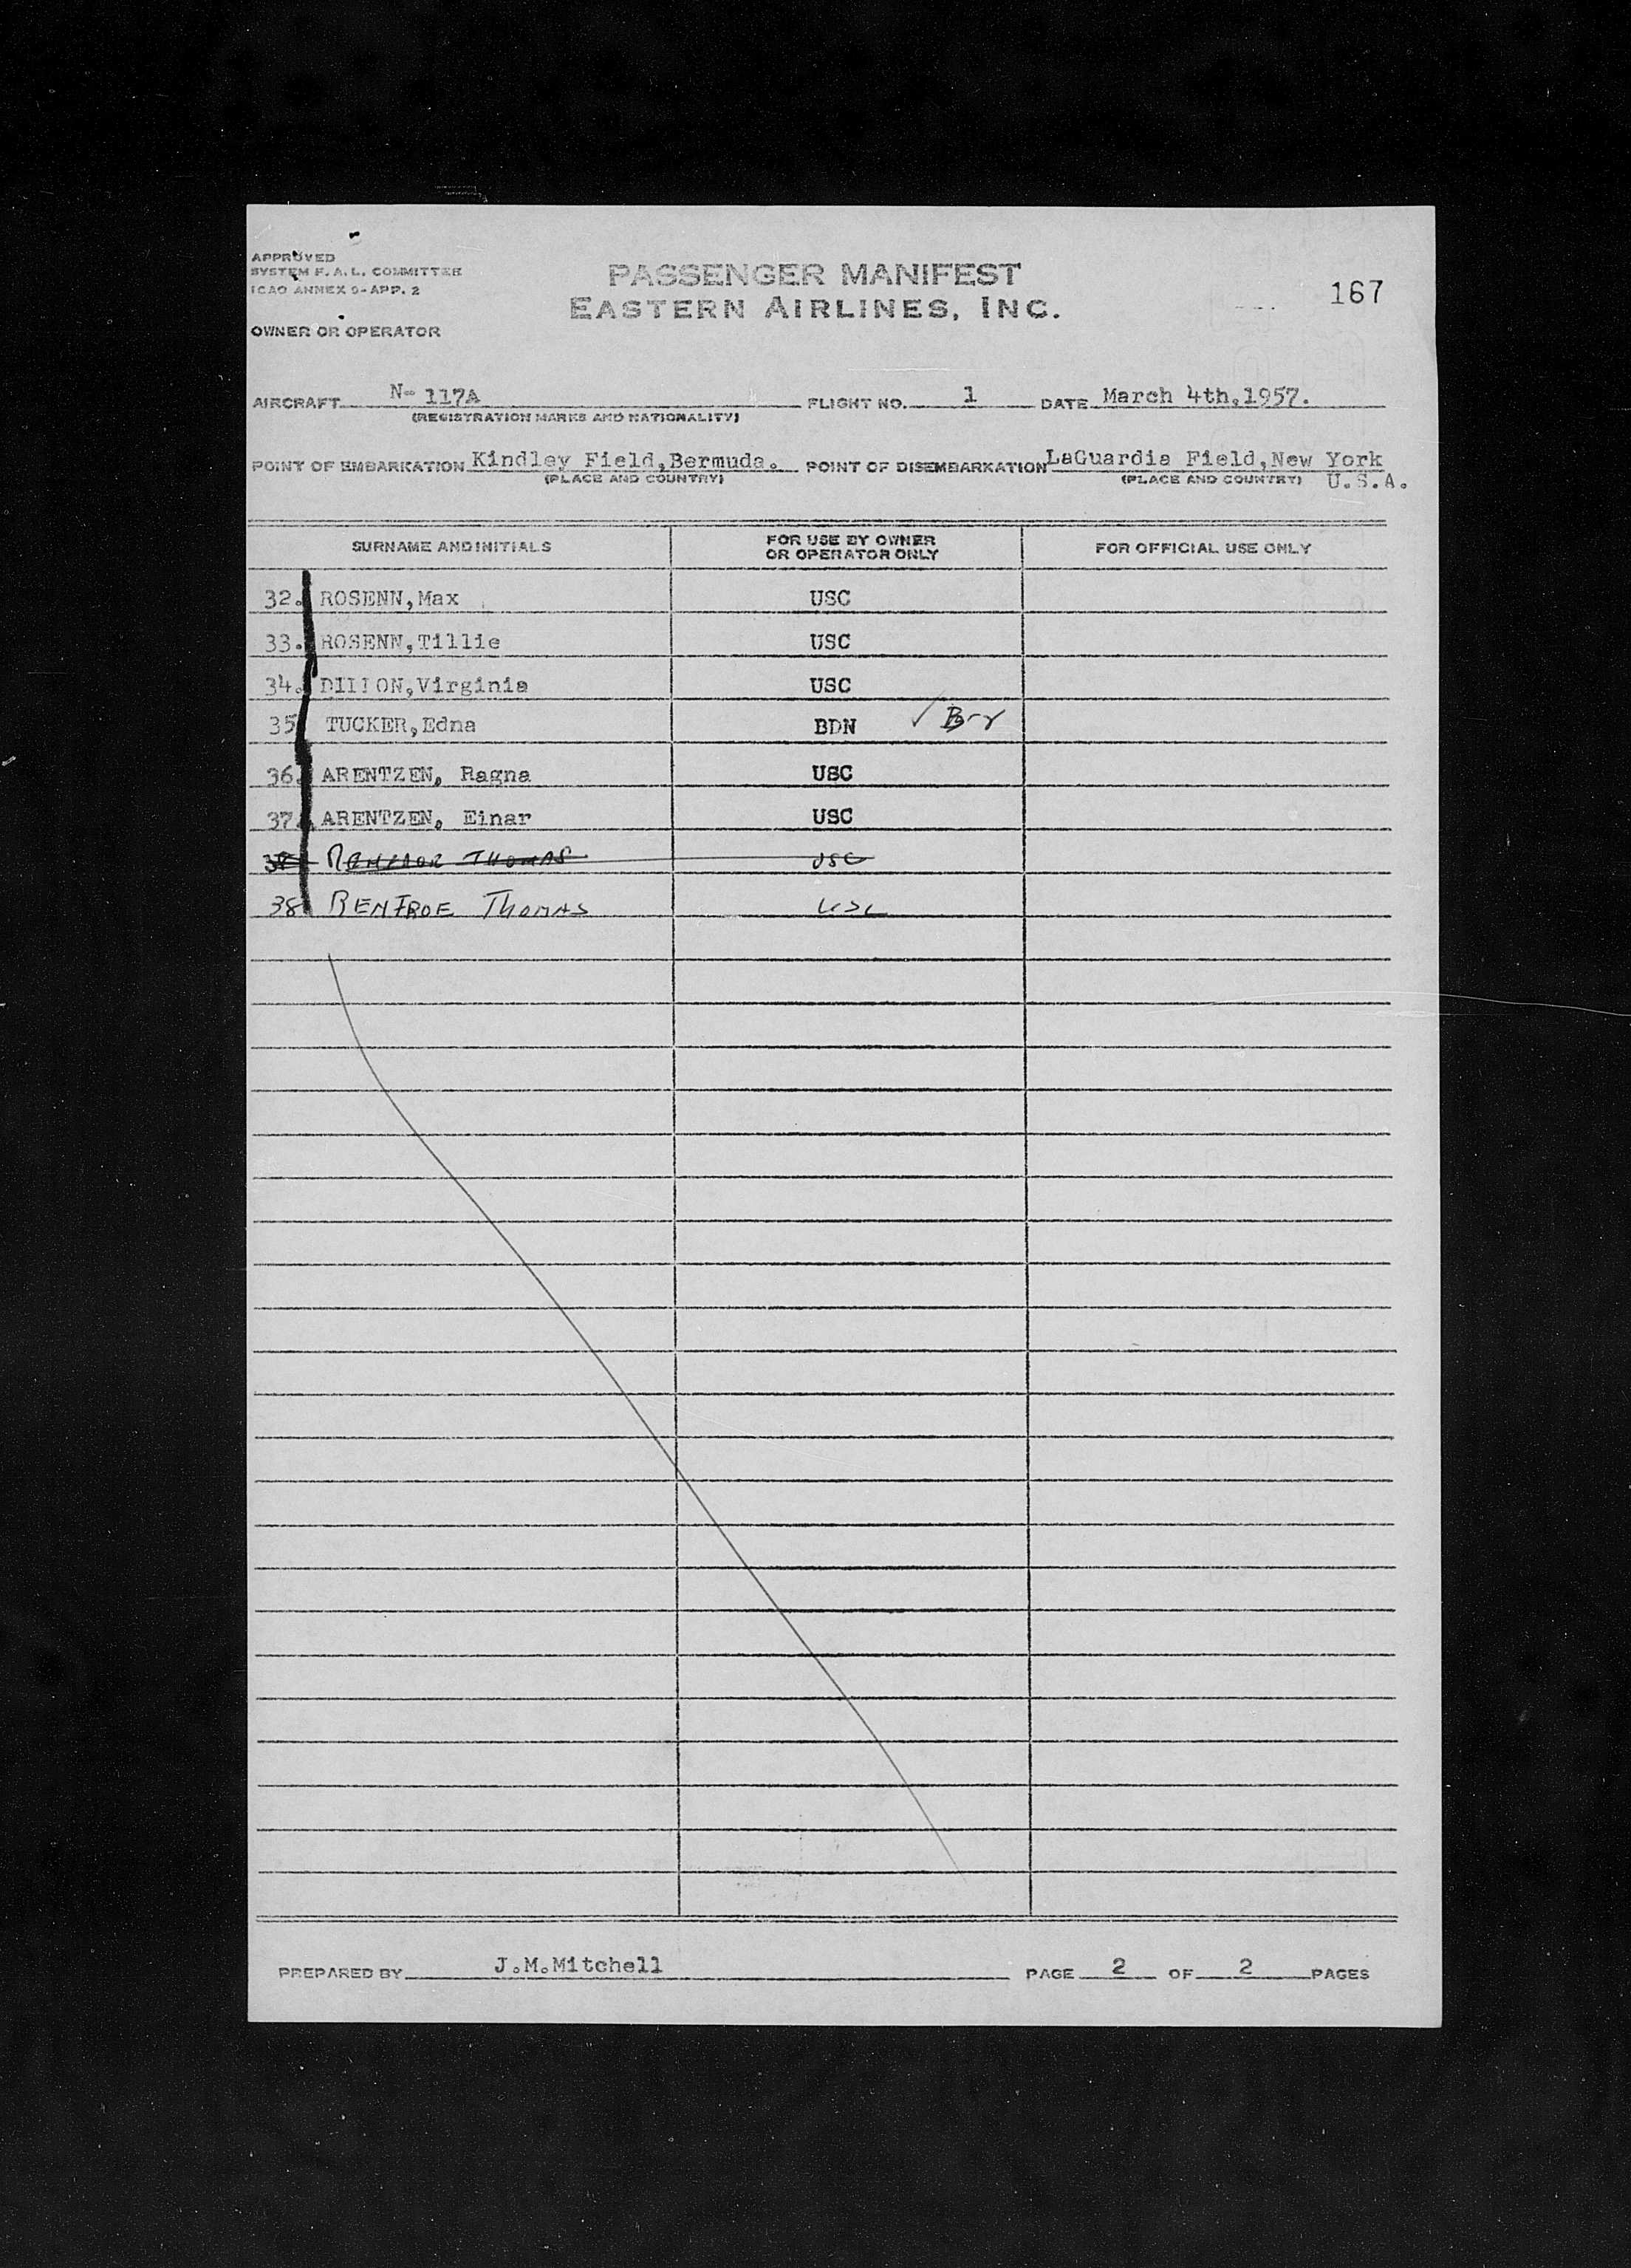 APPROVED
SYSTEM F.A.L. COMMITTEE
ICAO ANNEX 9-APP. 2
OWNER OR OPERATOR
PASSENGER MANIFEST
EASTERN AIRLINES, INC.
167
AIRCRAFT N- 117A FLIGHT NO. 1 DATE March 4th,1957.
(REGISTRATION MARKS AND NATIONALITY)
POINT OF EMBARKATION Kindley Field,Bermuda. POINT OF DISEMBARKATION LaGuardia Field,New York
(PLACE AND COUNTRY) (PLACE AND COUNTRY) U.S.A.
SURNAME AND INITIALS FOR USE BY OWNER OR OPERATOR ONLY FOR OFFICIAL USE ONLY
32. ROSENN,Max USC
33. ROSENN,Tillie USC
34. DILLON,Virginia USC
35 TUCKER,Edna BDN ✓
36. ARENTZEN, Ragna USC
37. ARENTZEN, Einar USC
38 THOMAS USC
38 RENFROE THOMAS USC
PREPARED BY J.M.Mitchell PAGE 2 OF 2 PAGES